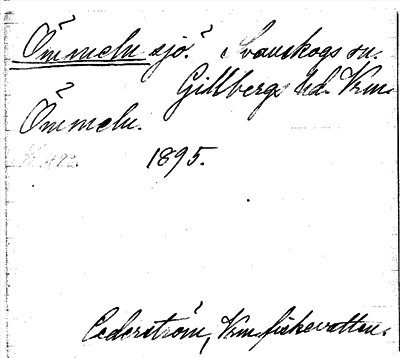 Ömmeln sjö. Svanskogs sn.
Gillbergs hd. Vrm.
Ömmeln.
1895.
Cederström, Vrm. fiskevatten.